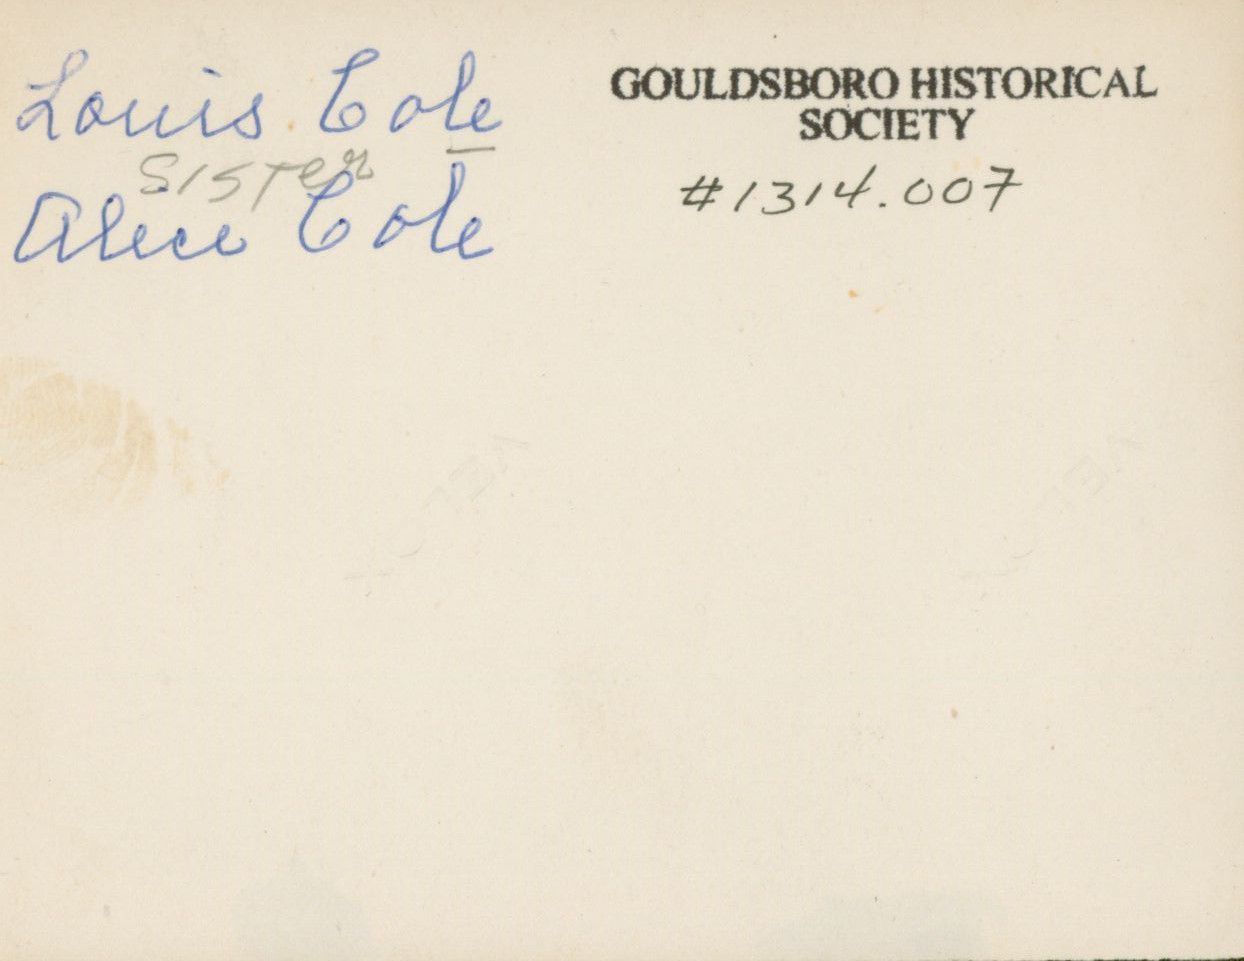 Louis Cole
SISTER
Alice Cole
GOULDSBORO HISTORICAL
SOCIETY
#1314.007